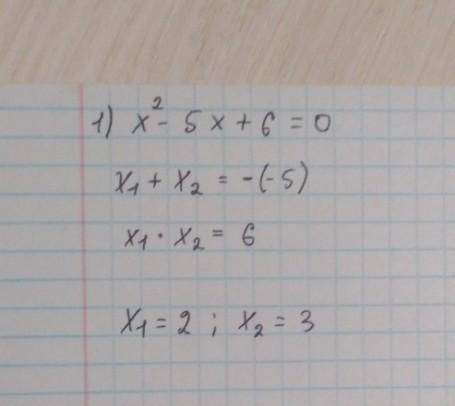 1) x² - 5x + 6 = 0
x₁ + x₂ = -(-5)
x₁ · x₂ = 6
x₁ = 2 ; x₂ = 3